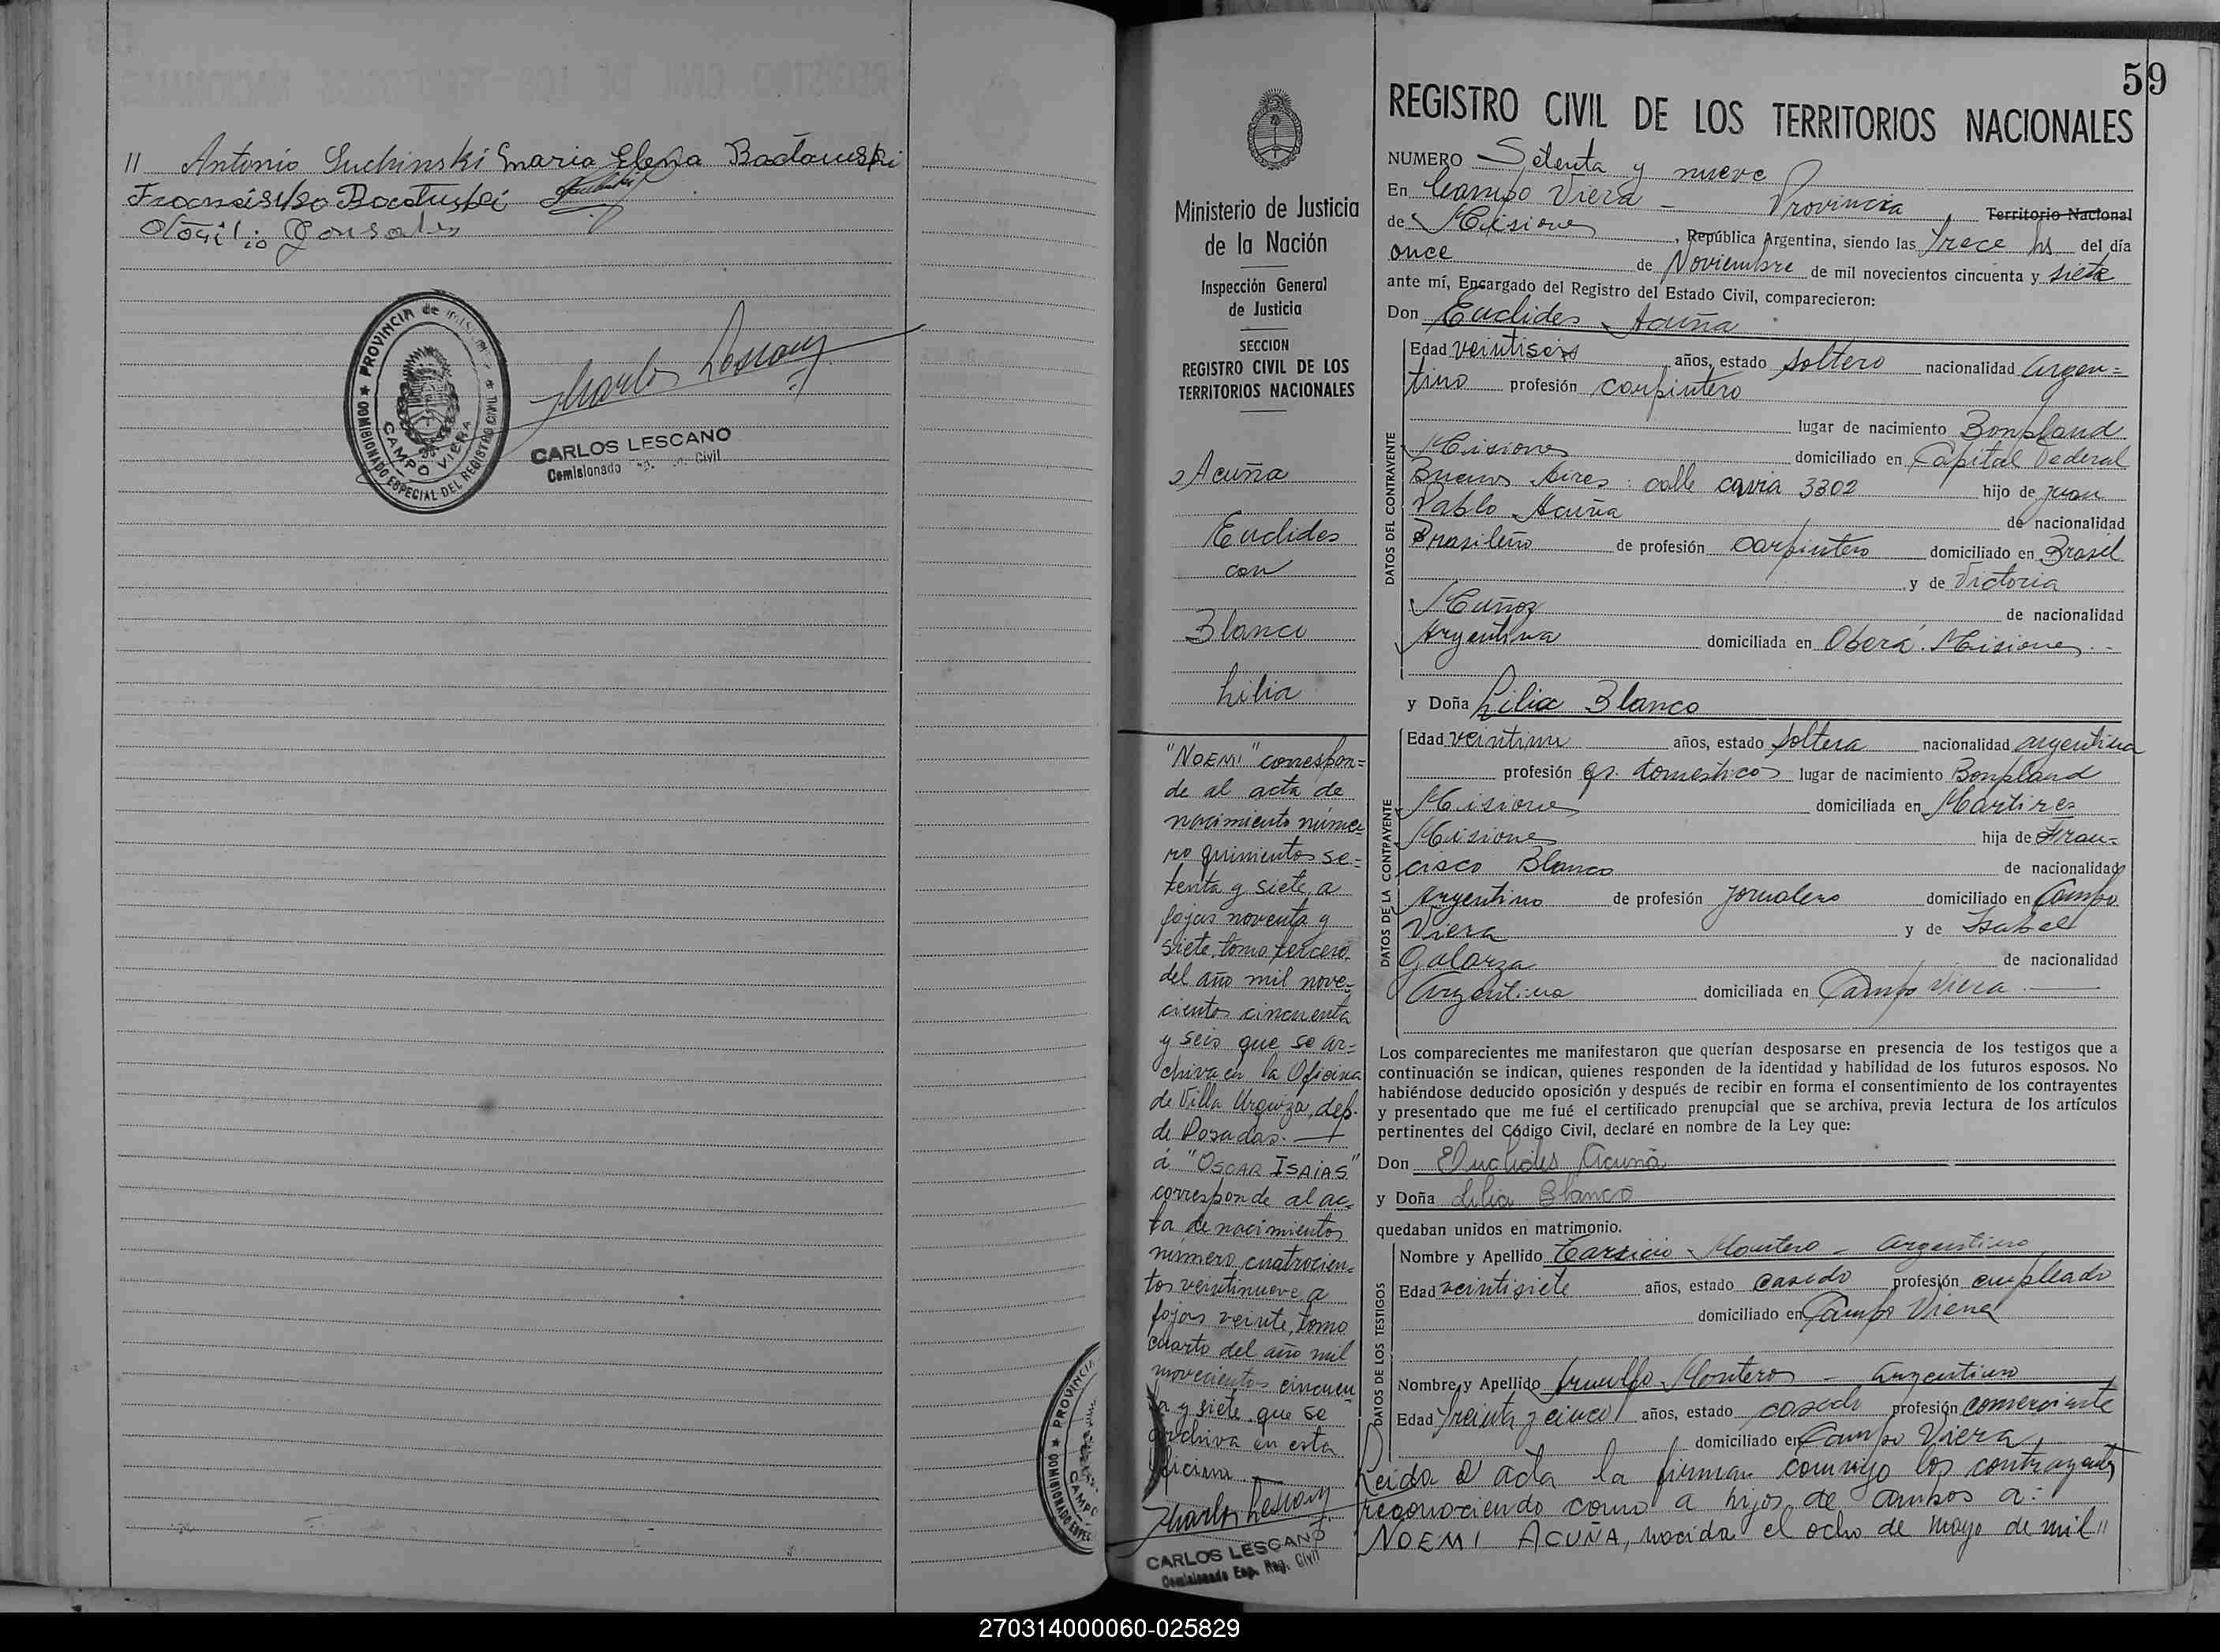 11 Antonio Suchinski Maria Elena Bactouski
Francisko
Gonsales
PROVINCIA de MISIONES
CAMPO VIERA
COMISIONADO ESPECIAL DEL REGISTRO CIVIL
CARLOS LESCANO
Comisionado Civil
59
Ministerio de Justicia
de la Nación
Inspección General
de Justicia
SECCION
REGISTRO CIVIL DE LOS
TERRITORIOS NACIONALES
Acuña
Euclides
con
Blanco
Lilia
"NOEMI" correspon=
de al acta de
nacimiento núme-
ro quinientos se=
tenta y siete a
fojas noventa y
siete, tomo tercero,
del año mil nove-
cientos cincuenta
y seis que se ar=
chiva en la Oficina
de Villa Urquiza, dep.
de Posadas.
a "OSCAR ISAIAS"
corresponde al ac-
ta de nacimientos
número cuatrocien-
tos veintinueve a
fojas veinte, tomo
cuarto del año mil
novecientos cincuen
ta y siete, que se
archiva en esta
oficina
Carlos Lescano
CARLOS LESCANO
Comisionado Esp. Reg. Civil
REGISTRO CIVIL DE LOS TERRITORIOS NACIONALES
NUMERO Setenta y nueve
En Campo Viera - Provincia Territorio Nacional
de Misiones, República Argentina, siendo las trece hs del día
once de Noviembre de mil novecientos cincuenta y siete
ante mí, Encargado del Registro del Estado Civil, comparecieron:
Don Euclides Acuña
DATOS DEL CONTRAYENTE
Edad veintiseis años, estado soltero nacionalidad argen=
tino profesión carpintero
lugar de nacimiento Bonpland
Misiones domiciliado en Capital Federal
Buenos Aires: calle cavia 3302 hijo de Juan
Pablo Acuña de nacionalidad
Brasileño de profesión carpintero domiciliado en Brasil
y de Victoria
Muñoz de nacionalidad
Argentina domiciliada en Oberá. Misiones.-
y Doña Lilia Blanco
DATOS DE LA CONTRAYENTE
Edad veintiun años, estado soltera nacionalidad argentina
profesión qs. domesticos lugar de nacimiento Bonpland
Misiones domiciliada en Martires
Misiones hija de Fran=
cisco Blanco de nacionalidad
Argentino de profesión jornalero domiciliado en Campo
Viera y de Isabel
Galarza de nacionalidad
Argentina domiciliada en Campo Viera
Los comparecientes me manifestaron que querían desposarse en presencia de los testigos que a
continuación se indican, quienes responden de la identidad y habilidad de los futuros esposos. No
habiéndose deducido oposición y después de recibir en forma el consentimiento de los contrayentes
y presentado que me fué el certificado prenupcial que se archiva, previa lectura de los artículos
pertinentes del Código Civil, declaré en nombre de la Ley que:
Don Euclides Acuña
y Doña Lilia Blanco
quedaban unidos en matrimonio.
DATOS DE LOS TESTIGOS
Nombre y Apellido Tarsicio Montero - argentino
Edad veintisiete años, estado casado profesión empleado
domiciliado en Campo Viera
Nombre y Apellido Arnulfo Montero - argentino
Edad treinta y cinco años, estado casado profesión comerciante
domiciliado en Campo Viera
Leida el acta la firman conmigo los contrayentes
reconociendo como a hijos de ambos a:
NOEMI ACUÑA, nacida el ocho de mayo de mil //
270314000060-025829